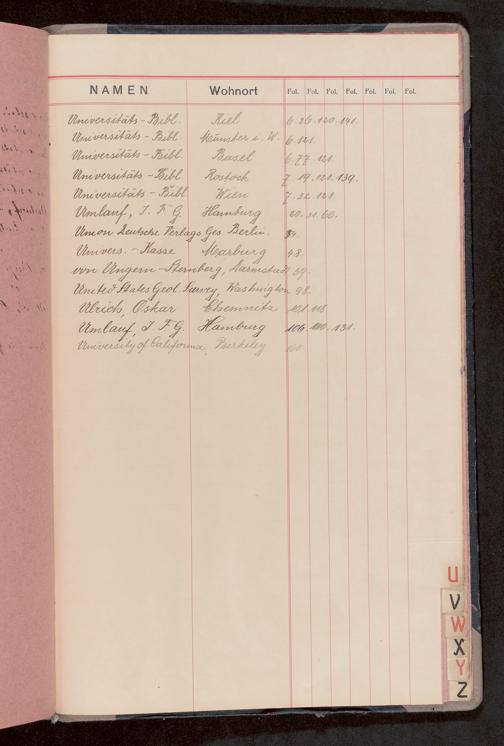 NAMEN Wohnort Fol. Fol. Fol. Fol. Fol. Fol. Fol.
Universitäts-Bibl. Kiel 6. 26. 120. 141.
Universitäts-Bibl. Münster i. W. 6. 121.
Universitäts-Bibl. Basel 6. 77. 121.
Universitäts-Bibl. Rostock 7. 19. 121. 139.
Universitäts-Bibl. Wien 7. 32. 121.
Umlauf, J. F. G. Hamburg 20. 31. 60.
Union Deutsche Verlags Ges. Berlin.
Univers.-Kasse Marburg 48.
von Ungern-Sternberg, Darmstadt 59.
United States Geol. Survey, Washington 98.
Ulrich, Oskar Chemnitz 101. 118.
Umlauf, J. F. G. Hamburg 106. 131.
University of California, Berkeley
U
V
W
X
Y
Z